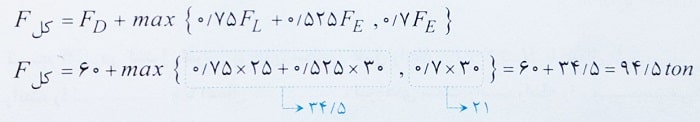 F کل = F_D + max { ۰/۷۵F_L + ۰/۵۲۵F_E , ۰/۷F_E }
F کل = ۶۰ + max { ۰/۷۵×۲۵ + ۰/۵۲۵×۳۰ , ۰/۷×۳۰ } = ۶۰ + ۳۴/۵ = ۹۴/۵ ton
۳۴/۵ ۲۱